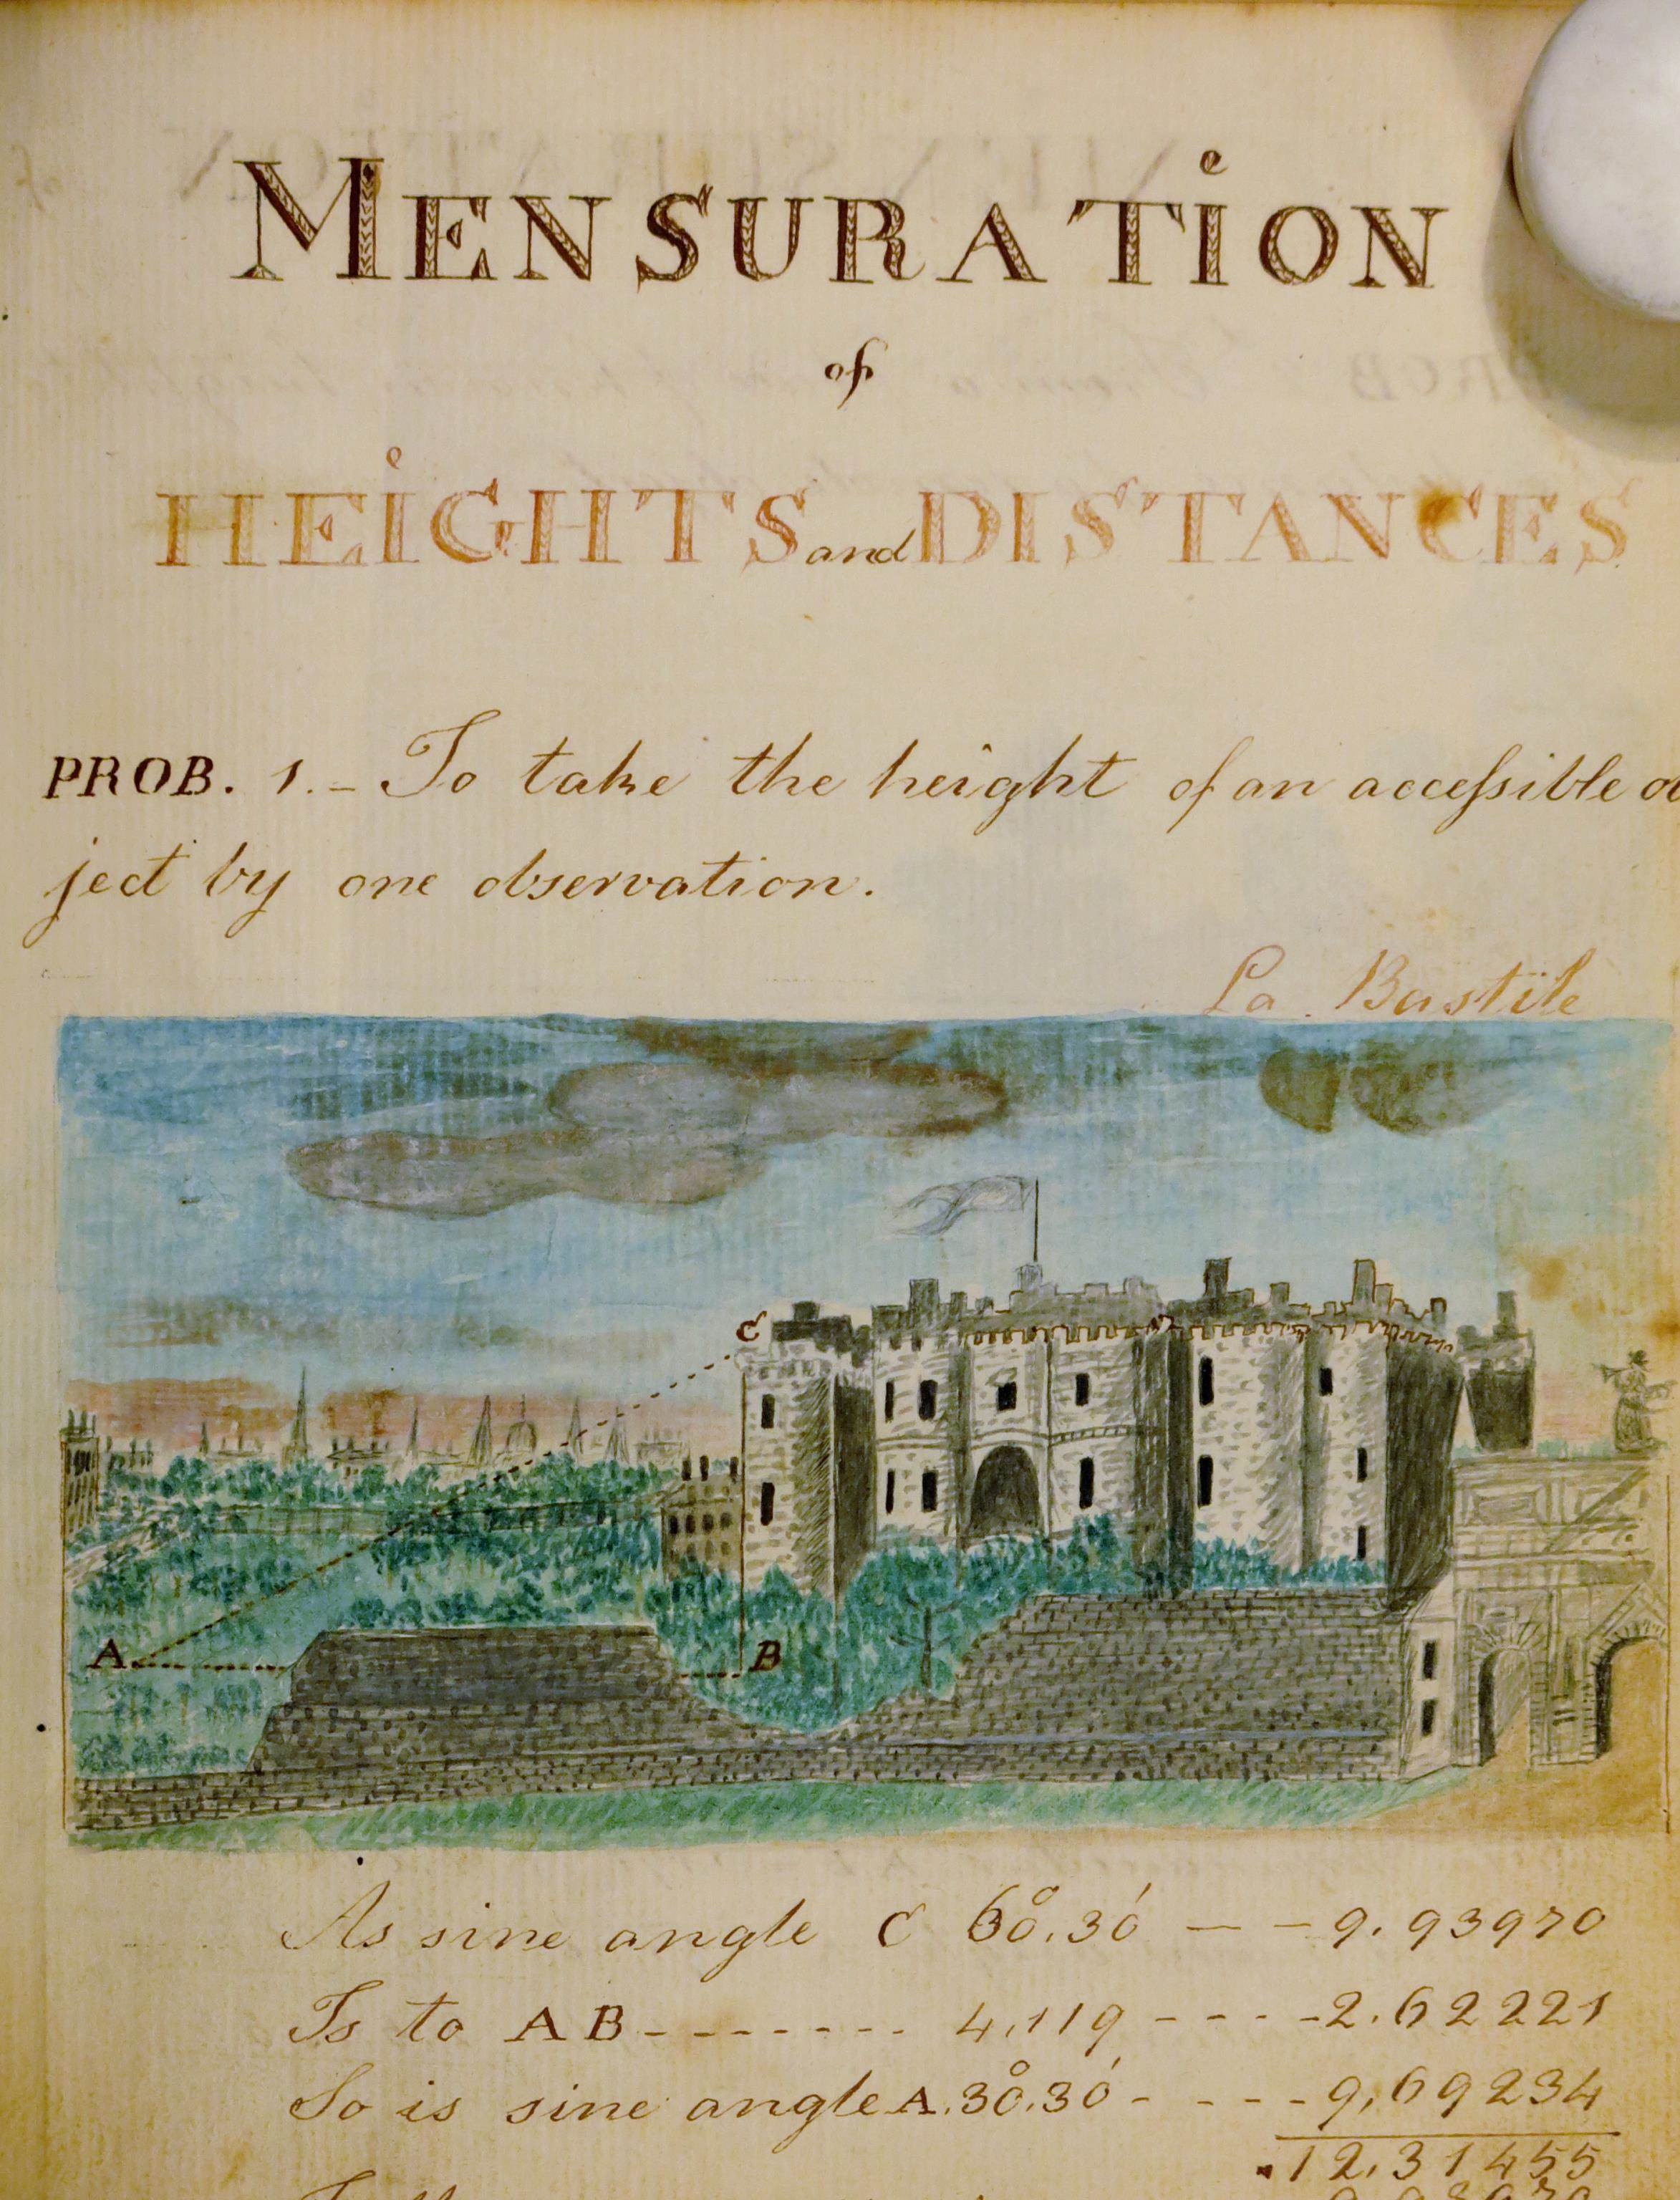 MENSURATION
of
HEIGHTS and DISTANCES
PROB. 1.- To take the height of an accessible ob
ject by one observation.
La Bastile
C
A
B
As sine angle C 60°.30' — — 9.93970
Is to AB - - - - - - - 4,119 - - - - 2.62221
So is sine angle A. 30°.30' - - - - 9,69234
12.31455